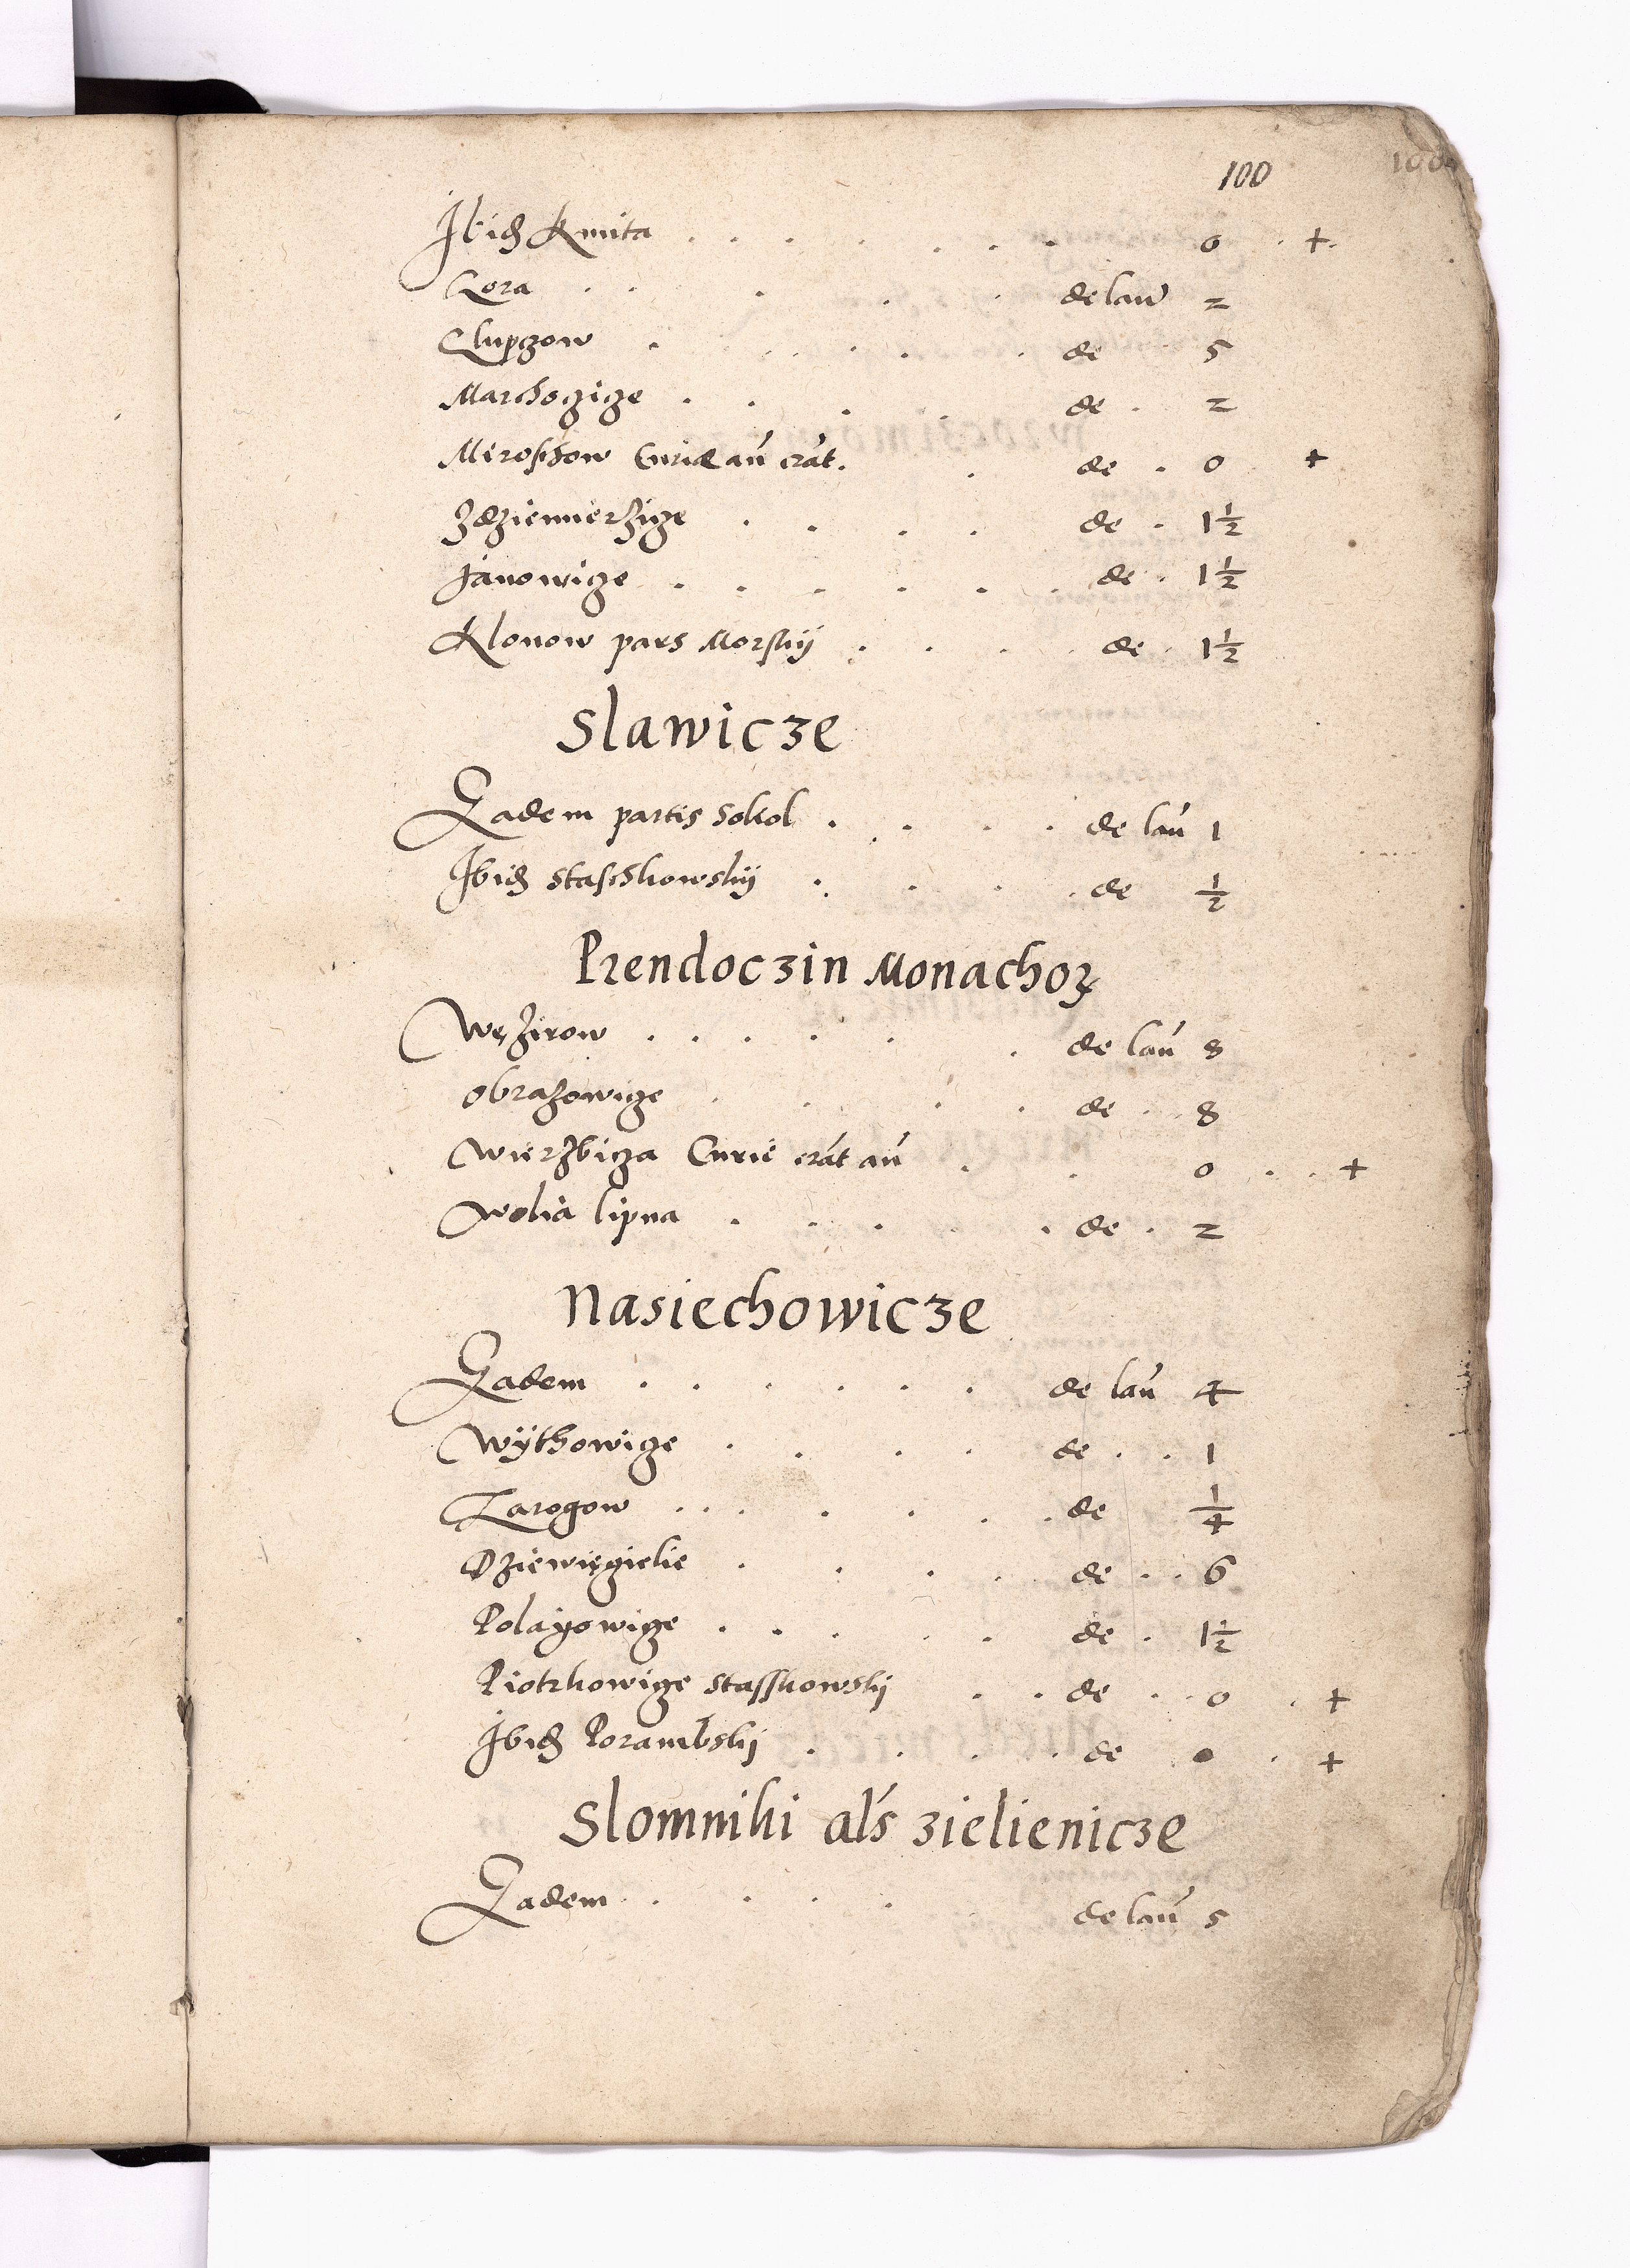 100
Ibid Kmita . . . . . . . 0 . +.
Gora . . . . . de lan 2
Clupczow . . . . . . de 5
Marchoczicze . . . . de . 2
Mirosschow Curiae an erat . . de . 0 +
Zdziemierzicze . . . . de . 1½
Janowicze . . . . . . de . 1½
Klonow pars Morskij . . . . de . 1½
Slawicze
Eadem partis Sokol . . . . de lan 1
Ibid Staschkowskij . . . . de ½
Prendoczin Monachoꝝ
Węzirow . . . . . . de lan 8
Obrazowicze . . . . de . . 8
Wierzbicza Curie erat an . . 0 . . . +
Wolia lipna . . . . . de . 2
Nasiechowicze
Eadem . . . . . . de lan 4
Wijthowicze . . . . de . . 1
Zarogow . . . . . . . de ¼
Dziewięczielie . . . . de . . 6
Polayowicze . . . . . de . 1½
Piotrkowicze Stasskowskij . . de . . 0 . +
Ibid Porambskij . . . . de 0 . +
Slomniki als Zielienicze
Eadem . . . . . de lan 5